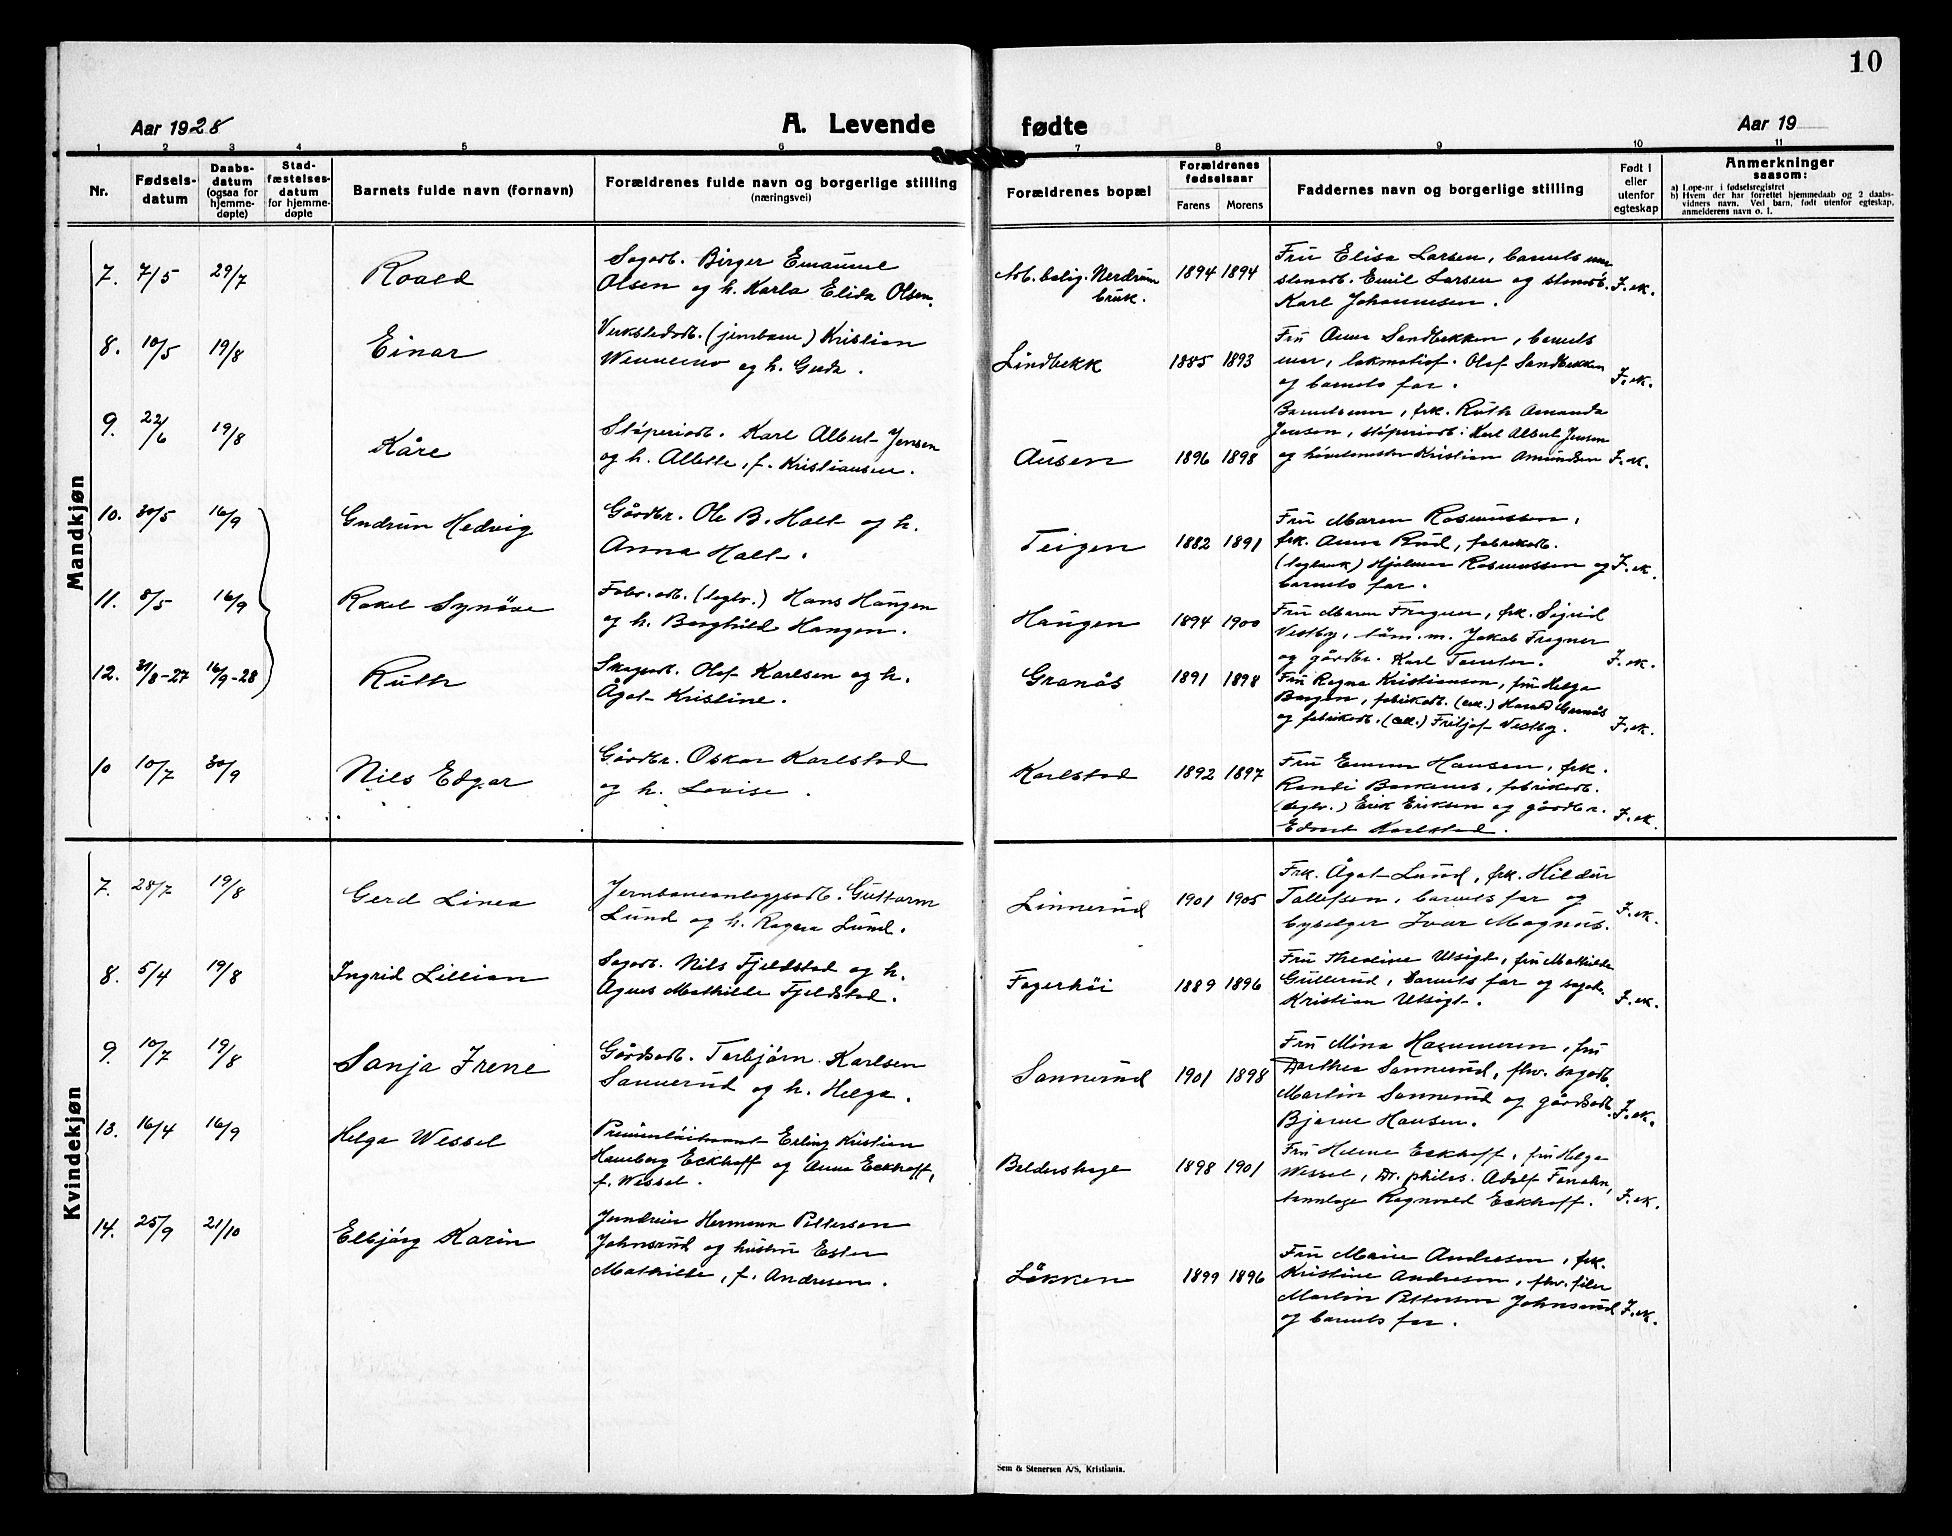 10
Aar 1928
A. Levende fødte
Aar 19
1 2 3 4 5 6 7 8 9 10 11
Nr.
Fødsels-
datum
Daabs-
datum
(ogsaa for
hjemme-
døpte)
Stad-
fæstelses-
datum
for hjemme-
døpte
Barnets fulde navn (fornavn)
Forældrenes fulde navn og borgerlige stilling
(næringsvei)
Forældrenes bopæl
Forældrenes
fødselsaar
Farens Morens
Faddernes navn og borgerlige stilling
Født i
eller
utenfor
egteskap
Anmerkninger
saasom:
a) Løpe-nr i fødselsregistret
b) Hvem der har forrettet hjemmedaab og 2 daabs-
vidners navn. Ved barn, født utenfor egteskap,
anmelderens navn o. l.
Mandkjøn
7. 7/5 29/7
Roald
Sagarb. Birger Emanuel
Olsen og h. Karla Elida Olsen.
Arb.bolig. Nerdrum
bruk.
1894 1894
Fru Elisa Larsen, barnets mor
stenarb. Emil Larsen og stenarb.
Karl Johannesen.
F. ek.
8. 10/5 19/8
Einar
Verkstedarb. (jernbane) Kristian
Wennemo og h. Gerda.
Lindbekk
1885 1893
Fru Anna Sandbekken, barnets
mor, lokmotivf. Olaf Sandbekken
og barnets far.
F. ek.
9. 22/6 19/8
Kåre
Støperiarb. Karl Albert Jensen
og h. Alette, f. Kristiansen.
Ausen
1896 1898
Barnets mor, frk. Ruth Amanda
Jensen, støperiarb. Karl Albert Jensen
og Kristian Amundsen
F. ek.
10. 30/5 16/9
Gudrun Hedvig
Gårdbr. Ole B. Holt og h.
Anna Holt.
Teigen
1882 1891
Fru Maren Rasmussen,
frk. Anna Rud, fabrikarb.
(teglverk) Hjalmar Rasmussen og
barnets far.
F. ek.
11. 8/5 16/9
Rakel Synöve
Fabr.arb. (teglv.) Hans Haugen
og h. Borghild Haugen.
Haugen
1894 1900
Fru Maren Fragner, frk. Sigrid
Vestby, töm.m. Jakob Fragner
og gårdbr. Karl Tomter.
F. ek.
12. 31/8-27 16/9-28
Ruth
Skogarb. Olaf Karlsen og h.
Ågot Kristine.
Granås
1891 1898
Fru Ragna Kristiansen, fru Helga
Borgen, fabrikarb. (cell.) Harald Granås
og fabrikarb. (cell.) Fritjof Vestby.
F. ek.
10 10/7 30/9
Nils Edgar
Gårdbr. Oskar Karlstad
og h. Lovise.
Karlstad
1892 1897
Fru Emma Hansen, frk.
Randi Barkenes, fabrikarb.
(teglv.) Erik Eriksen og gårdbr.
Edvart Karlstad.
F. ek.
Kvindekjøn
7. 28/7 19/8
Gerd Linea
Jernbaneanlegsarb. Guttorm
Lund og h. Ragna Lund.
Linnerud
1901 1905
Frk. Ågot Lund, frk. Hildur
Tollefsen, barnets far og
byselger Ivar Magnus.
F. ek.
8. 5/4 19/8
Ingrid Lillian
Sagarb. Nils Fjeldstad og h.
Agnes Mathilde Fjeldstad.
Fagerhöi
1889 1896
Fru Thealine Utsigt, fru Mathilde
Gullerud, barnets far og sagarb.
Kristian Utsigt.
F. ek.
9. 10/7 19/8
Sonja Irene
Gårdsarb. Torbjörn Karlsen
Sannerud og h. Helga.
Sannerud
1901 1898
Fru Mina Hammeren, fru
Dorthea Sannerud, fhv. sagarb.
Martin Sannerud og gårdsarb.
Bjarne Hansen.
F. ek.
13. 16/4 16/9
Helga Wessel
Premierløitnant Erling Kristian
Hamborg Eckhoff og Anna Eckhoff,
f. Wessel.
Baldershage
1898 1901
Fru Helene Eckhoff, fru Helga
Wessel, Dr. philos. Adolf Fonahn,
tannlege Ragnvald Eckhoff.
F. ek.
14. 25/9 21/10
Elbjörg Karin
Jerndreier Hermann Pettersen
Johnsrud og hustru Ester
Mathilde, f. Andresen.
Løkken
1899 1896
Fru Marie Andresen, frk.
Kristine Andresen, fhv. filer
Martin Pettersen Johnsrud
og barnets far.
F. ek.
Sem & Stenersen A/S, Kristiania.